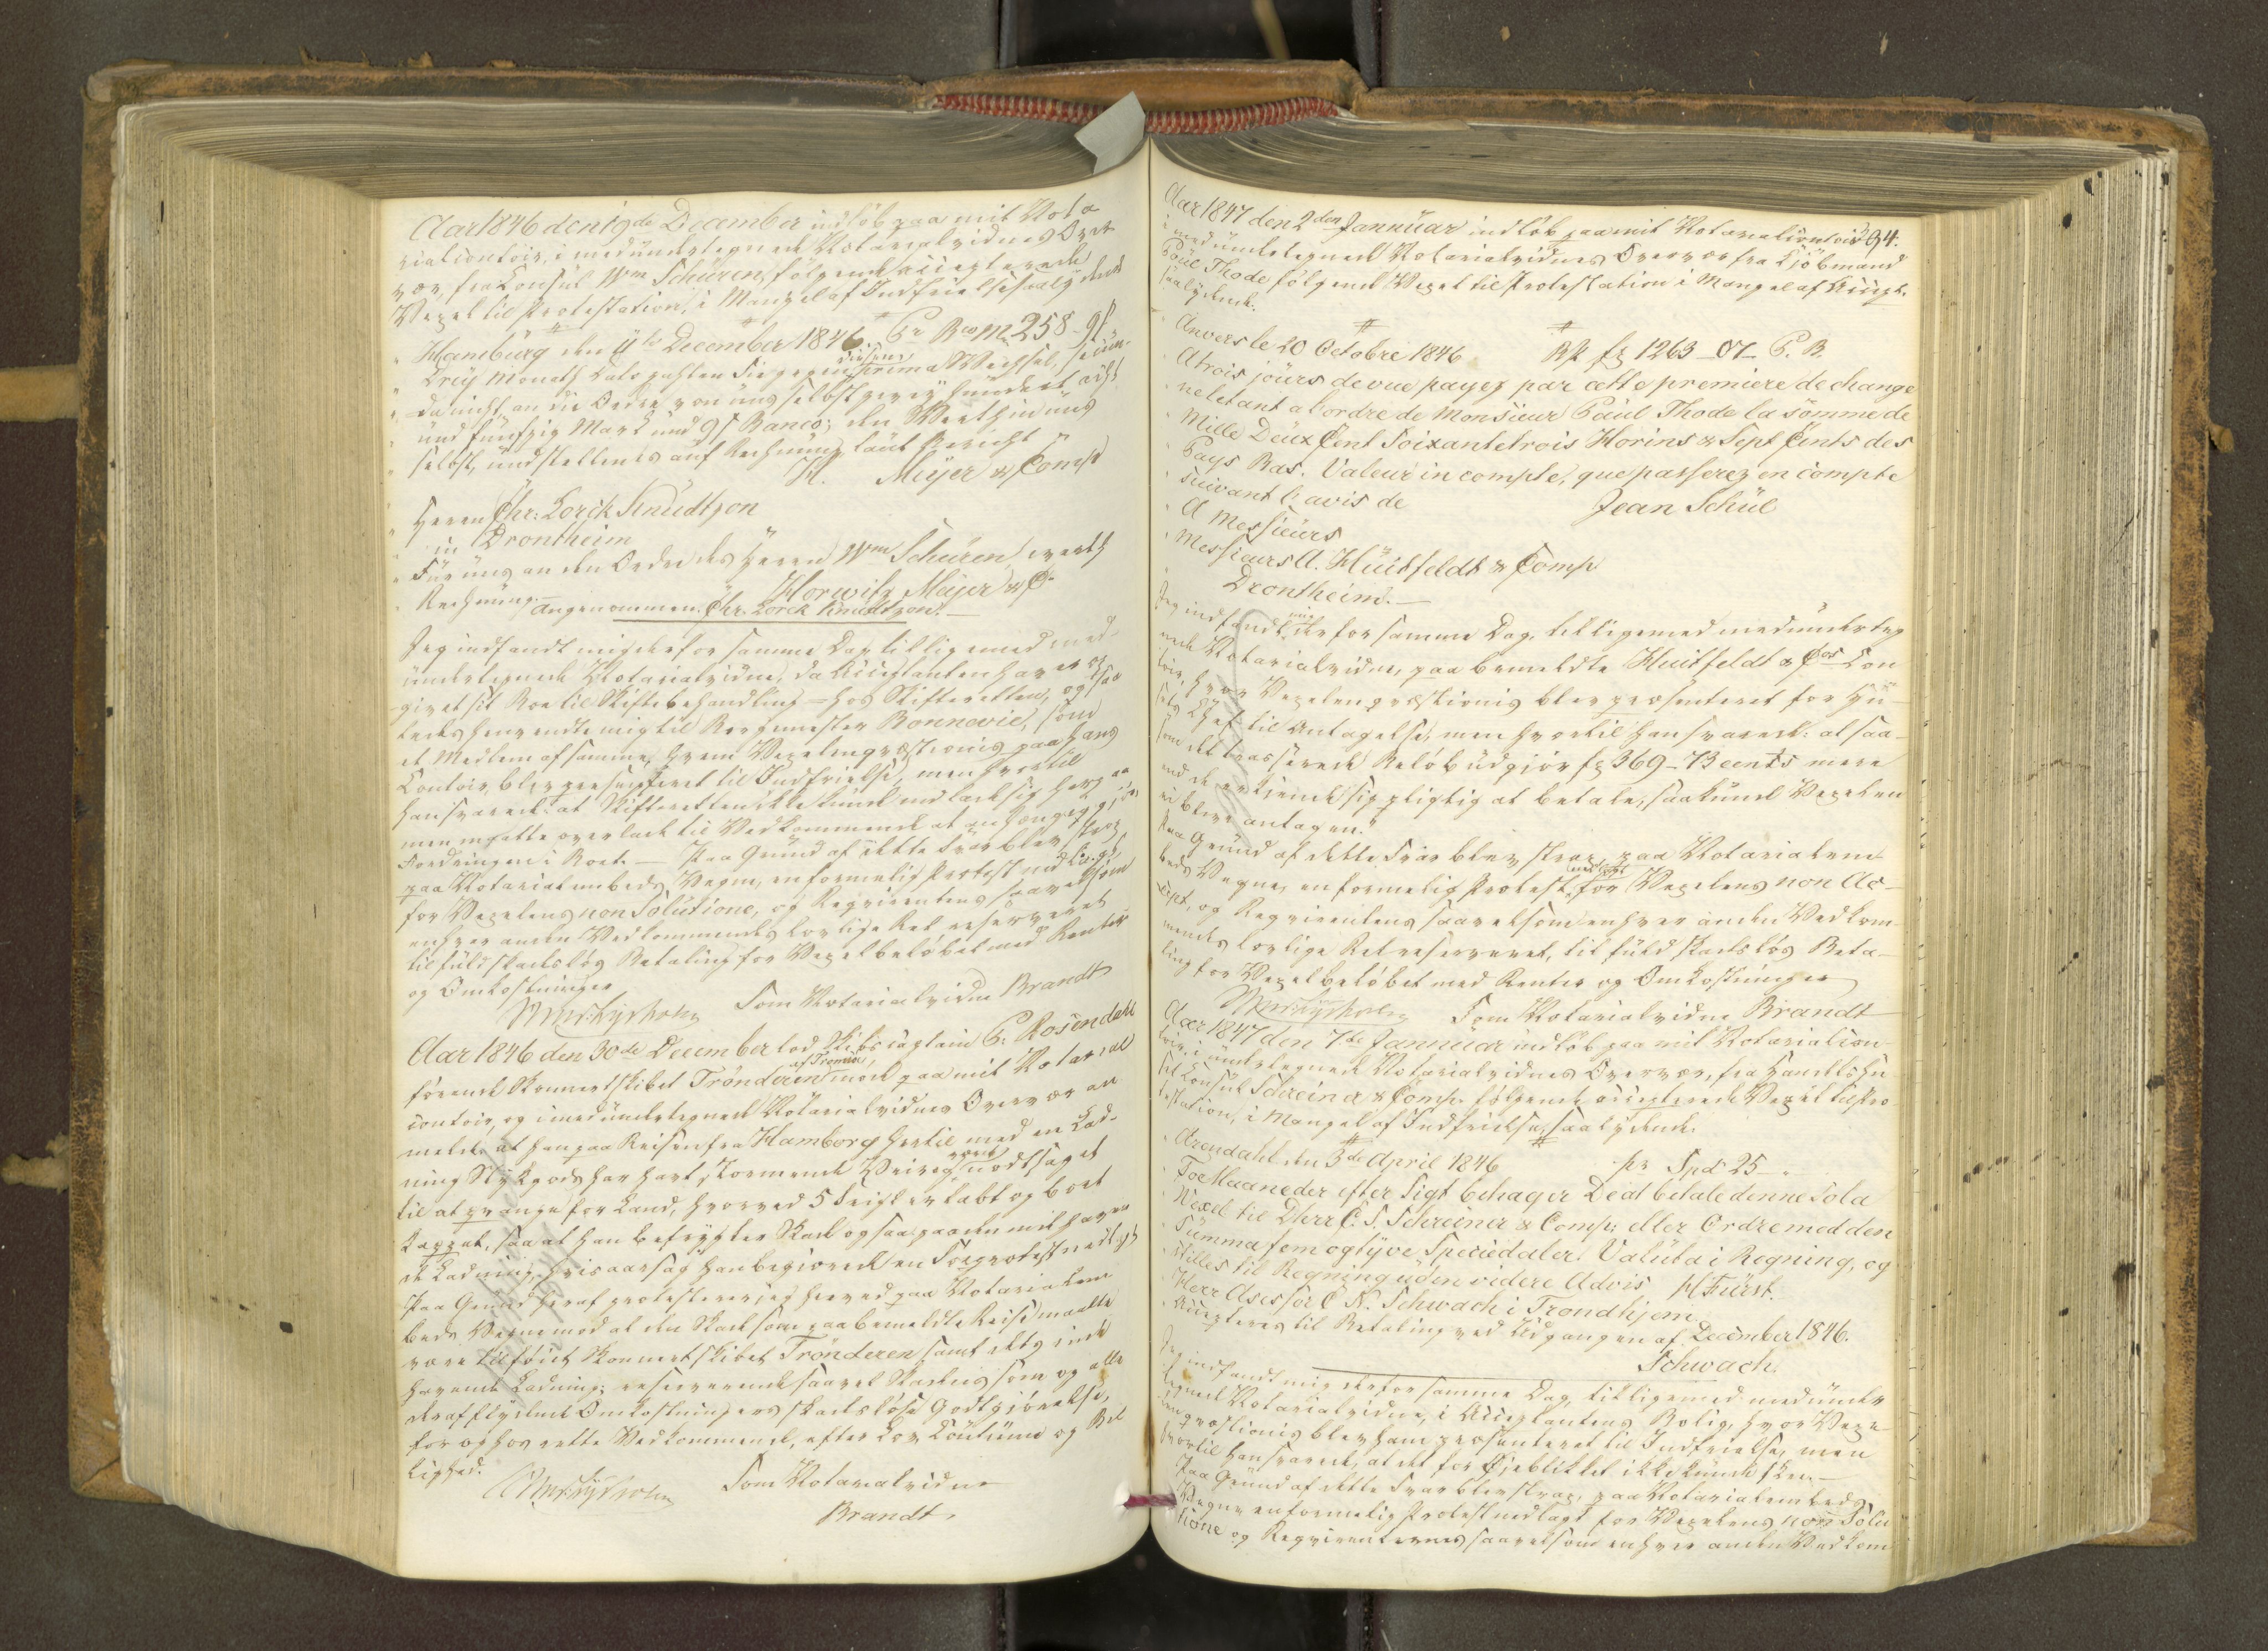 Aar 1846 den 19de December indløb paa mit Nota
rialcontoir, i medunderteqnede Notarialvidnes Over
vær, fra Consul Wm Schüren, følgende accepterede
Vexel til Protestation, i Mangel af Indfrielse saalydende
Hamburg den 4te December 1846. Pr Bco M 258 - 9ß.
Drey Monath dato zahlen Sie gegen diesen prima Wechsel, secun-
da nicht, an die Ordre von uns selbst zwey hundert acht
und funfzig Mark und 9ß Banco; den Werth in uns
selbst, und stellen es auf Rechnung laut Bericht
H. Meyer & Comp
Herrn Chr: Lorck Knudtzon
in Drontheim
Für uns an die Ordre des Herrn Wm Schüren, werth
Rechnung. Horwitz Meyer & Co
Angenommen. Chr. Lorck Knudtzon.
Jeg indfandt mig derfor samme Dag tilligemed med-
undertegnede Notarialvidne, da Acceptanten har over
givet sit Boe til Skiftebehandling hos Skifteretten, og saa
ledes henvendte mig til Borgermester Bonnevie, som
et Medlem af samme, hvem Vexelen qvæstionis paa hans
Contoir, blev præsenteret til Indfrielse, men hvortil
han svarede: at Skifteretten ikke kunde indlade sig herpaa
men maatte overlade til Vedkommende at anhængiggjøre
Fordringen i Boet. — Paa Grund af dette Svar blev strax,
paa Notarialembeds Vegne, en formelig Protest nedlagt
for Vexelens non Solutione, og Reqvirentens saavelsom
enhver anden Vedkommendes lovlige Ret reserveret
til fuld skadesløs Betaling for Vexelbeløbet med Renter
og Omkostninger
Lysholm Som Notarialvidne Brandt
Aar 1846 den 30de December lod Skibscaptain P. Rosendahl
førende Skonnertskibet Trønderen af Tromsø, møde paa mit Notarial
contoir, og i medundertegnede Notarialvidnes Overvær an
melde at han paa Reisen fra Hamborg hertil med en Lad-
ning Stykgods har havt stormende Veir og været nødtsaget
til at prange for Land, hvorved 5 Seigl er tabt og Boet
kappet, saa at han befrygter Skade og saa paa den mit haven
de Ladning, hvis aarsag han begiærede en Søeprotest nedlagt
Paa Grund heraf protesterer jeg herved paa Notarialem
beds Vegne mod at den Skade som paa bemeldte Reise maatte
være tilføiet Skonnertskibet Trønderen samt dets inde
havende Ladning; reserverende saavel Skadens som og alle
deraf flydende Omkostningers skadesløse Godtgjørelse,
for og hos rette Vedkommende, efter Lov, Coutume og Bil
lighed.
Lysholm Som Notarialvidne
Brandt
94.
Aar 1847 den 2den Januar indløb paa mit Notarialcontoir
i medundertegnede Notarialvidnes Overvær fra Kjøbmand
Poul Thode følgende Vexel til Protestation i Mangel af Accept.
saalydende.
Anvers le 20 Octobre 1846 Bp fz 1263 - 07 P. B.
A trois jours de vue payez par cette premiere de change
ne letant a l'ordre de Monsieur Paul Thode la somme de
Mille Deux Cent Soixantetrois Florins & Sept Cents des
Pays Bas. Valeur in compte, que passerez en compte
suivant l'avis de Jean Schül
A Messieurs
Messieurs A. Huitfeldt & Comp
Drontheim. —
Jeg indfandt mig derfor samme Dag, tilligemed medundertegn
ede Notarialvidne, paa bemeldte Huitfeldt & Cos Con
toir, hvor Vexelen qvæstionis blev præsenteret for Hu-
sets Chef til Antagelse, men hvortil han svarede: at saa-
som det trasserede Beløb udgjør fz 369 - 73 cents mere
end de erkjende sig pligtig at betale, saa kunde Vexelen
ei blive antagen."
Paa Grund af dette Svar blev strax, paa Notarialem
beds Vegne, en formelig Protest nedlagt for Vexelens non Ac-
cept, og Reqvirentens saavelsom enhver anden Vedkom
mendes lovlige Ret reserveret, til fuld skadesløs Beta-
ling for Vexelbeløbet med Renter og Omkostninger
Lysholm Som Notarialvidne Brandt
Aar 1847 den 7de Januar indløb paa mit Notarialcon-
toir, i undertegnede Notarialvidnes Overvær, fra Handelshu
set Consul Schreiner & Comp. følgende accepterede Vexel til Pro
testation, i Mangel af Indfrielse, saalydende.
Arendahl den 3de April 1846 pr Spd 25 —
Toe Maaneder efter Sigt behager De at betale denne Sola
Vexel til Dherr C. S. Schreiner & Comp: eller Ordre med den
Summa fem og tyve Speciedaler. Valuta i Regning, og
stilles til Regning uden videre Advis H Fürst.
Herr Asessor C. N. Schwach i Trondhjem
Accepteres til Betaling ved Udgangen af December 1846.
Schwach.
Jeg indfandt mig derfor samme Dag, tilligemed medunder
tegnede Notarialvidne, i Acceptantens Bolig, hvor Vexe
len qvæstionis blev ham præsenteret til Indfrielse, men
hvortil han svarede, at det for Øieblikket ikke kunde skee. —
Paa Grund af dette Svar blev strax, paa Notarialembeds
Vegne en formelig Protest nedlagt for Vexelens non Solu
tione og Reqvirenternes saavelsom enhver anden Vedkom